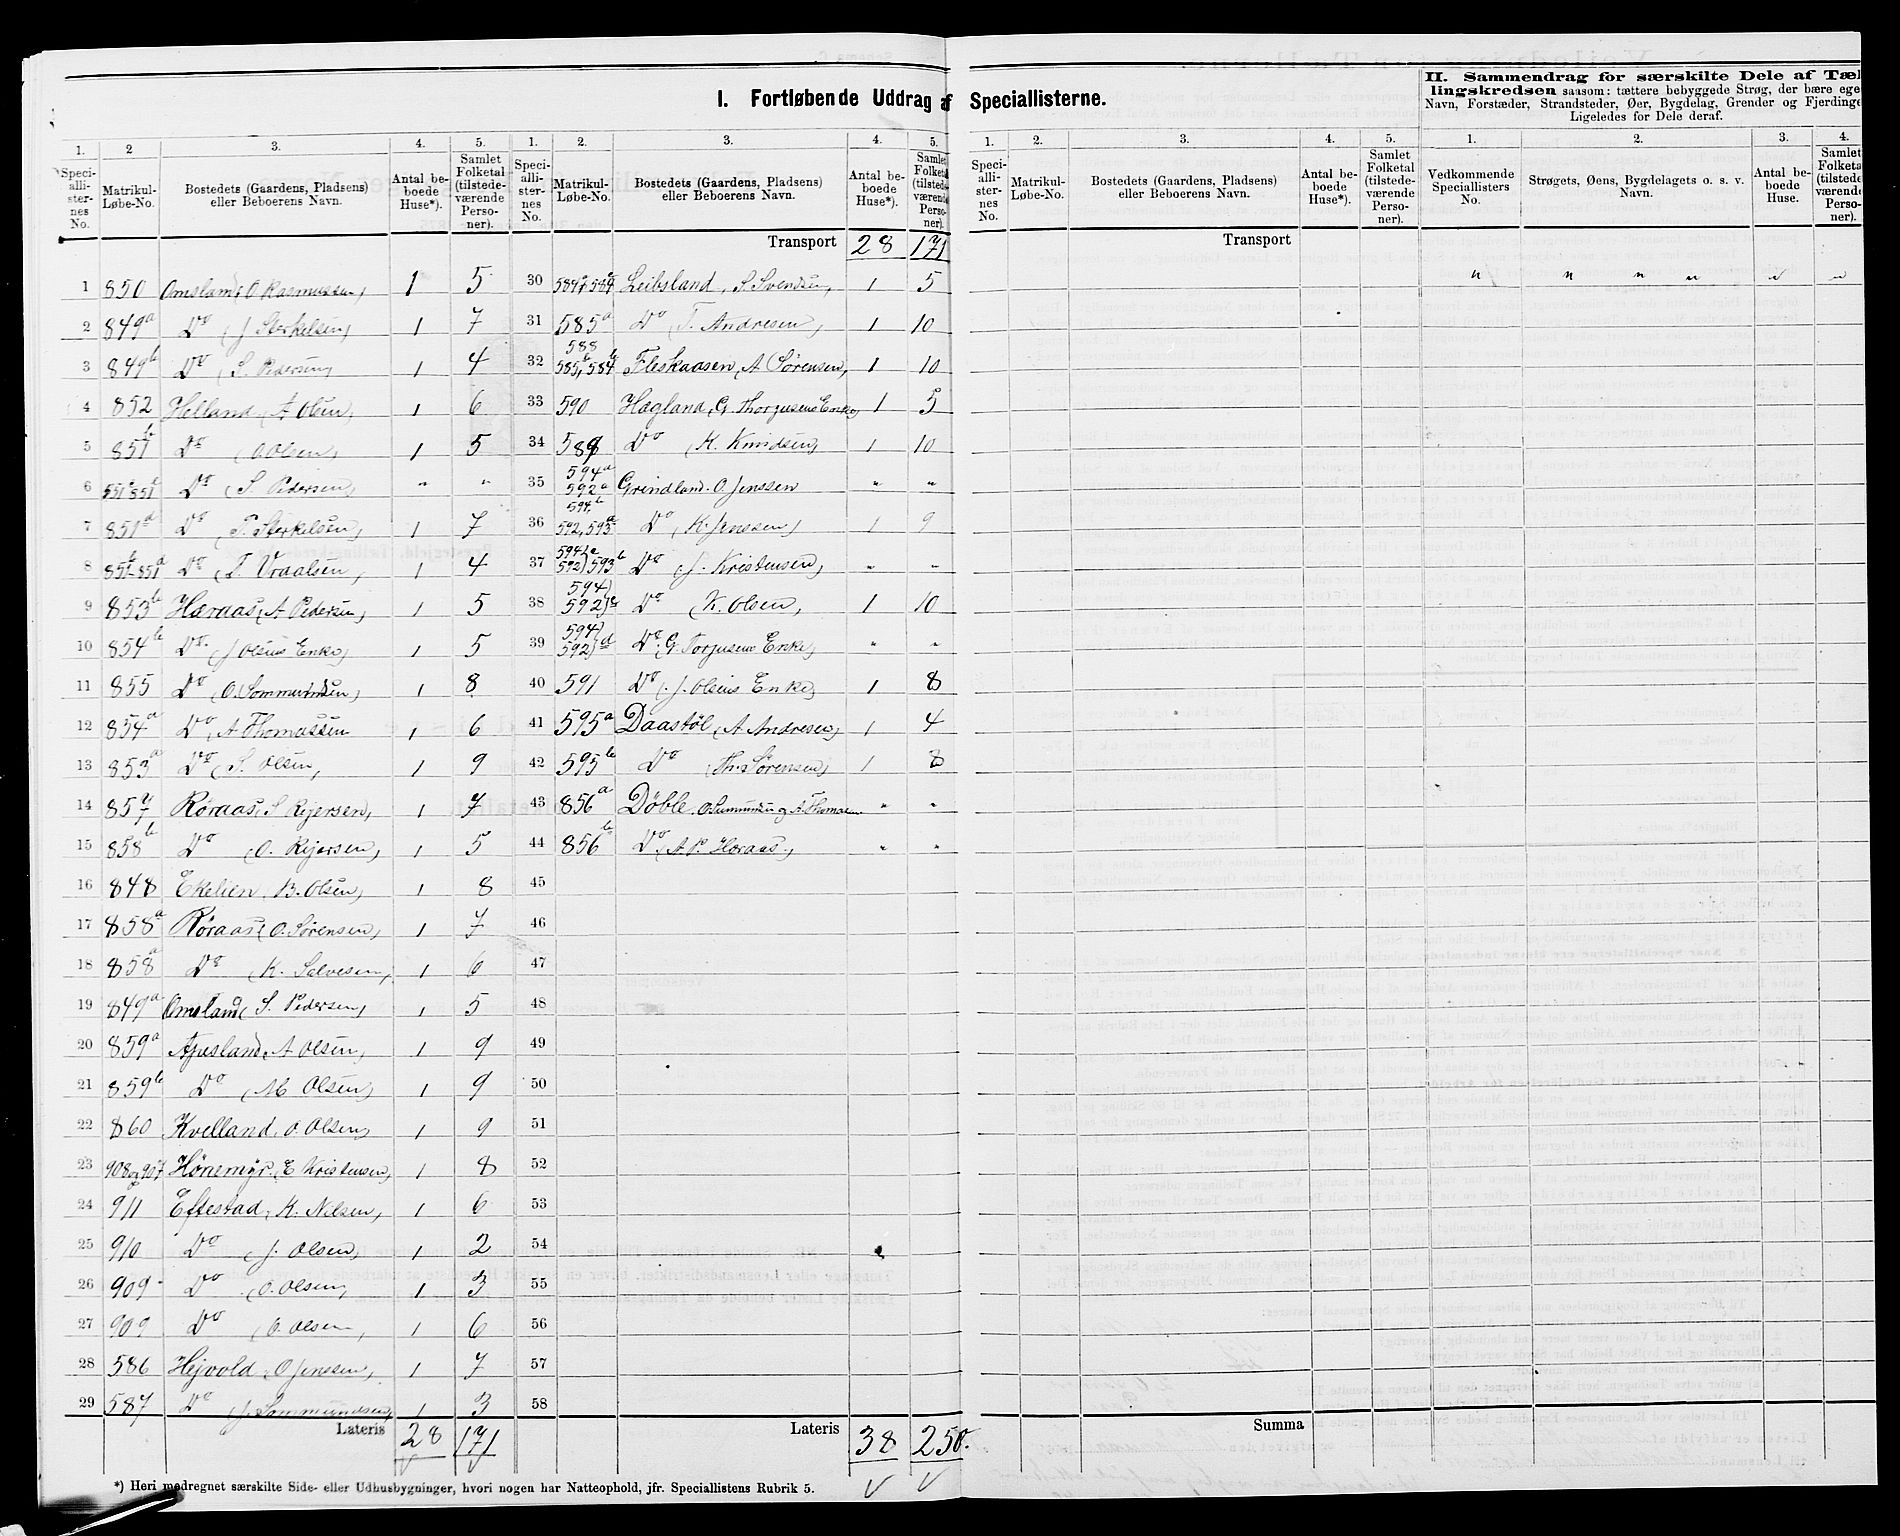 I. Fortløbende Uddrag af Speciallisterne.
II. Sammendrag for særskilte Dele af Tæl
lingskredsen saasom: tættere bebyggede Strøg, der bære ege
Navn, Forstæder, Strandsteder, Øer, Bygdelag, Grender og Fjerdinge
Ligeledes for Dele deraf.
1. 2 3. 4. 5. 1. 2. 3. 4. 5. 1. 2. 3. 4. 5. 1. 2. 3. 4.
Speciallisternes No. Matrikul-Løbe-No. Bostedets (Gaardens, Pladsens) eller Beboerens Navn. Antal beboede Huse*). Samlet Folketal (tilstedeværende Personer).
Speciallisternes No. Matrikul-Løbe-No. Bostedets (Gaardens, Pladsens) eller Beboerens Navn. Antal beboede Huse*). Samlet Folketal (tilstedeværende Personer).
Speciallisternes No. Matrikul-Løbe-No. Bostedets (Gaardens, Pladsens) eller Beboerens Navn. Antal beboede Huse*). Samlet Folketal (tilstedeværende Personer).
Vedkommende Speciallisters No. Strøgets, Øens, Bygdelagets o. s. v. Navn. Antal beboede Huse. Samlet Folketal (tilstedeværende Personer).
1 850 Omsland, O Rasmussen, 1 5
2 849a Do (J Sterkelsen) 1 7
3 849b Do (S. Pedersen) 1 4
4 852 Helland (A Olsen) 1 6
5 851b Do (O Olsen) 1 5
6 Do (S. Pedersen) " "
7 851d Do (P. Sterkelsen) 1 7
8 Do (T. Vraalsen, 1 4
9 853b Hæraas (A Pedersen) 1 5
10 854b Do. (J Olsens Enke) 1 5
11 855 Do (O. Sommundsen) 1 8
12 854a Do (A Thomassen 1 6
13 853a Do (S. Olsen, 1 9
14 857 Røraas, S Rejersen, 1 7
15 858b Do (O. Rejersen, 1 5
16 848 Ekelien, B. Olsen, 1 8
17 858a Røraas (O. Sørensen, 1 7
18 858a Do (K. Salvesen, 1 6
19 849a Omsland (S. Pedersen) 1 5
20 859a A Olsen, 1 9
21 859b Do (M Olsen) 1 9
22 860 Kvelland, O. Olsen, 1 9
23 908 og 907 Hønemyr, (E Kristensen, 1 8
24 911 Eftestad, K. Nilsen, 1 6
25 910 Do (J. Olsen, 1 2
26 909 Do (O. Olsen, 1 3
27 909 Do (O. Olsen, 1 6
28 586 Hejvold (O Jenssen, 1 7
29 587 Do (J. Sommundsen, 1 3
Lateris 28 171
Transport 28 171
30 Leibsland, S Svendsen, 1 5
31 585a Do (T. Andresen, 1 10
32 588 585b, 584b Fleskaasen (A Sørensen, 1 10
33 590 Hægland, G. Thorjusens Enke, 1 5
34 589 Do (K. Knudsen, 1 10
35 594a 592a Grindland. O. Jenssen " "
36 594b 592, 593a Do (K. Jenssen) 1 9
37 594 592) 593b Do (J. Kristensen, " "
38 594) 592)c Do (K. Olsen, 1 10
39 594) 592)d Do, G. Torjusens Enke, " "
40 591 Do (J. Olsens Enke, 1 8
41 595a Daastøl (A Andresen, 1 4
42 595b Do (Th. Sørensen, 1 8
43 856a Døble, O. Summundsen og A. Thomassen " "
44 856b Do (A P. Hæraas.) " "
45
46
47
48
49
50
51
52
53
54
55
56
57
58
Lateris 38 250.
Transport
" " " " " "
Summa
*) Heri medregnet særskilte Side- eller Udhusbygninger, hvori nogen har Natteophold, jfr. Speciallistens Rubrik 5.